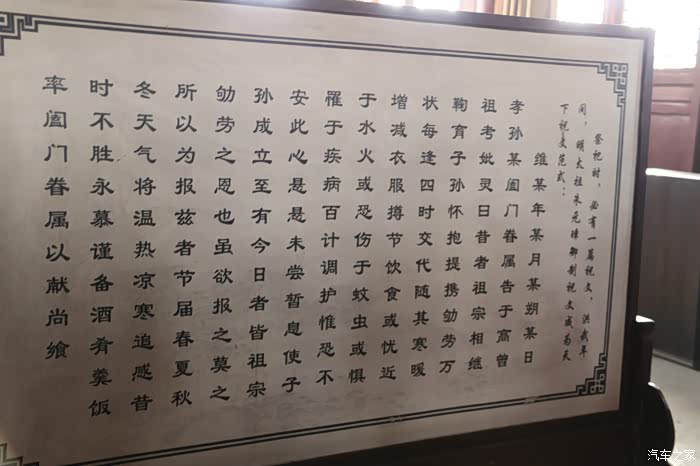 祭祀时，必有一篇祝文，洪武年
间，明太祖朱元璋御制祝文成为天
下祝文范式：
维某年某月某朔某日
孝孙某阖门眷属告于高曾
祖考妣灵曰昔者祖宗相继
鞠育子孙怀抱提携劬劳万
状每逢四时交代随其寒暖
增减衣服撙节饮食或忧近
于水火或恐伤于蚊虫或惧
罹于疾病百计调护惟恐不
安此心悬悬未尝暂息使子
孙成立至有今日者皆祖宗
劬劳之恩也虽欲报之莫之
所以为报兹者节届春夏秋
冬天气将温热凉寒追感昔
时不胜永慕谨备酒肴羹饭
率阖门眷属以献尚飨
汽车之家